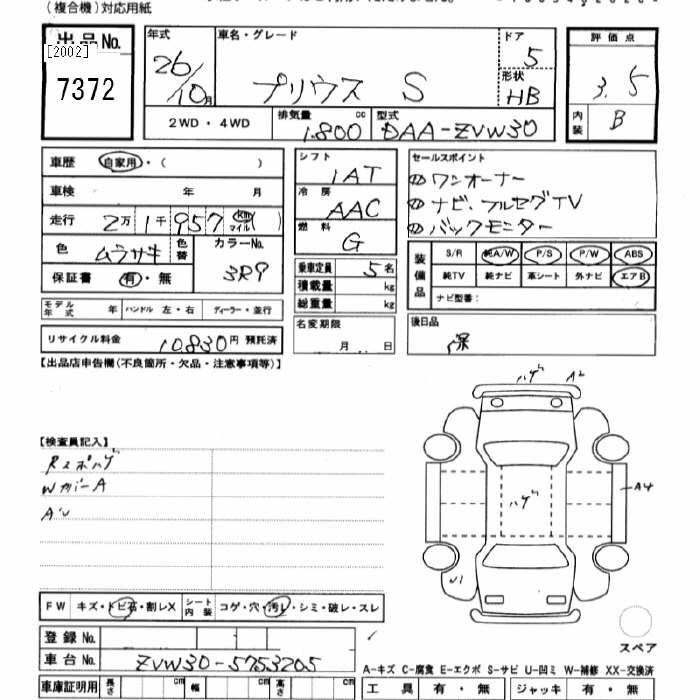 (複合機)対応用紙
出品No. 年式 車名・グレード ドア 評価点
[2002]
7372 26/10月 プリウス S 5 3.5
形状 HB
内装 B
2WD・4WD 排気量 1.800 cc 型式 DAA-ZVW30
車歴 自家用・( )
車検 年 月
走行 2万1千957 km マイル ( )
色 ムラサキ 色替 カラーNo. 3R9
保証書 有・無
モデル年式 年 ハンドル 左・右 ディーラー・並行
リサイクル料金 10.830円 預託済
シフト IAT
冷房 AAC
燃料 G
乗車定員 5名
積載量 kg
総重量 kg
名変期限 月 日
セールスポイント
ワンオーナー
ナビ、フルセグTV
バックモニター
装備品 S/R 純A/W P/S P/W ABS
純TV 純ナビ 革シート 外ナビ エアB
ナビ型番:
後日品
保
【出品店申告欄(不良箇所・欠品・注意事項等)】
【検査員記入】
Rスポハゲ
WカバーA
ハゲ A2
ハゲ
A4
U1
FW キズ・トビ石・割レX シート内装 コゲ・穴・汚レ・シミ・破レ・スレ
スペア
登録No.
車台No. ZVW30-5753205
A-キズ C-腐食 E-エクボ S-サビ U-凹ミ W-補修 XX-交換済
車庫証明用 長さ cm 幅 cm 高さ cm 工具 有・無 ジャッキ 有・無